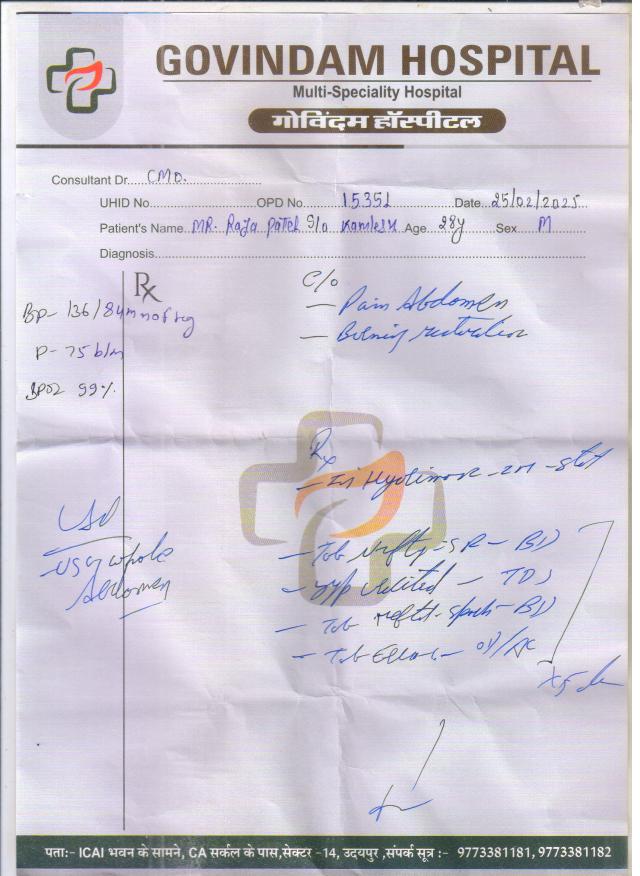 GOVINDAM HOSPITAL
Multi-Speciality Hospital
गोविंदम हॉस्पीटल
Consultant Dr. CMO.
UHID No. OPD No. 15351 Date 25/02/2025
Patient's Name MR. Raja Patel S/o Kamlesh Age 28y Sex M
Diagnosis
Rx
BP- 136/84
P- 75 b/m
SPO2 99%
C/o
- Pain Abdomen
- Burning
Rx
- stat
- Tab SR - BD
- Syp - TDS
- Tab - BD
- Tab - OD/AC
x5
USG whole
Abdomen
पता:- ICAI भवन के सामने, CA सर्कल के पास,सेक्टर -14, उदयपुर ,संपर्क सूत्र :- 9773381181, 9773381182